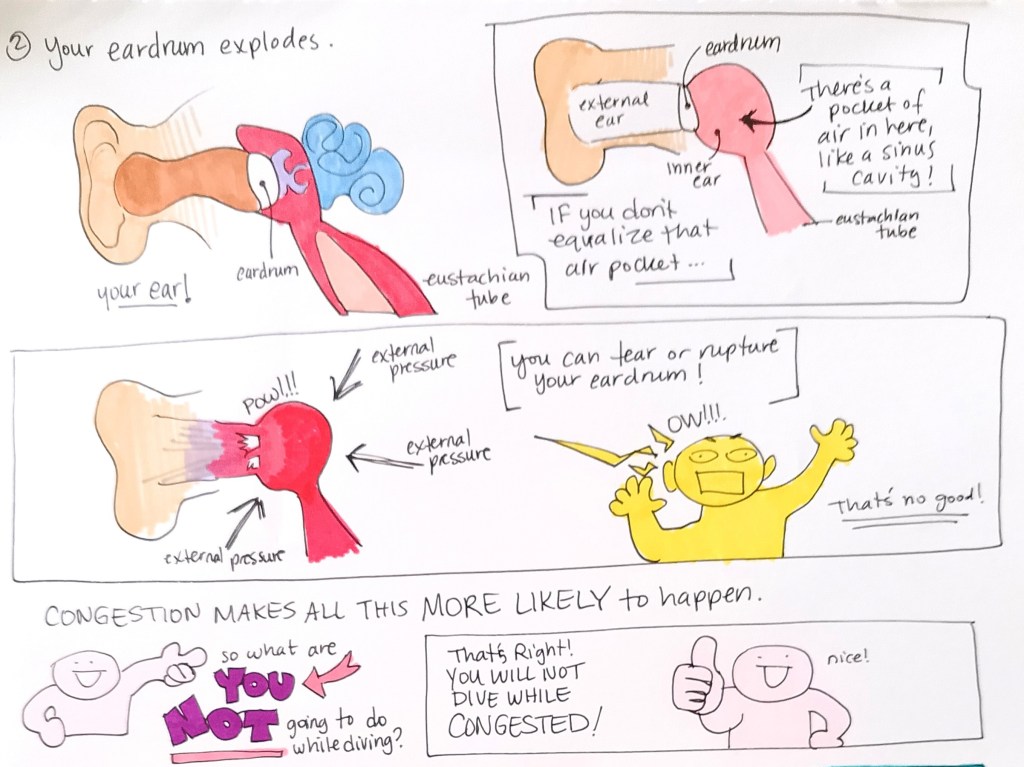 ② Your eardrum explodes.
your ear!
eardrum
eustachian
tube
eardrum
external
ear
inner
ear
There's a
pocket of
air in here,
like a sinus
cavity!
eustachian
tube
If you don't
equalize that
air pocket ...
POW!!!
external
pressure
external
pressure
external pressure
you can tear or rupture
your eardrum!
OW!!!!
That's no good!
CONGESTION MAKES ALL THIS MORE LIKELY to happen.
so what are
YOU
NOT going to do
while diving?
That's Right!
YOU WILL NOT
DIVE WHILE
CONGESTED!
nice!